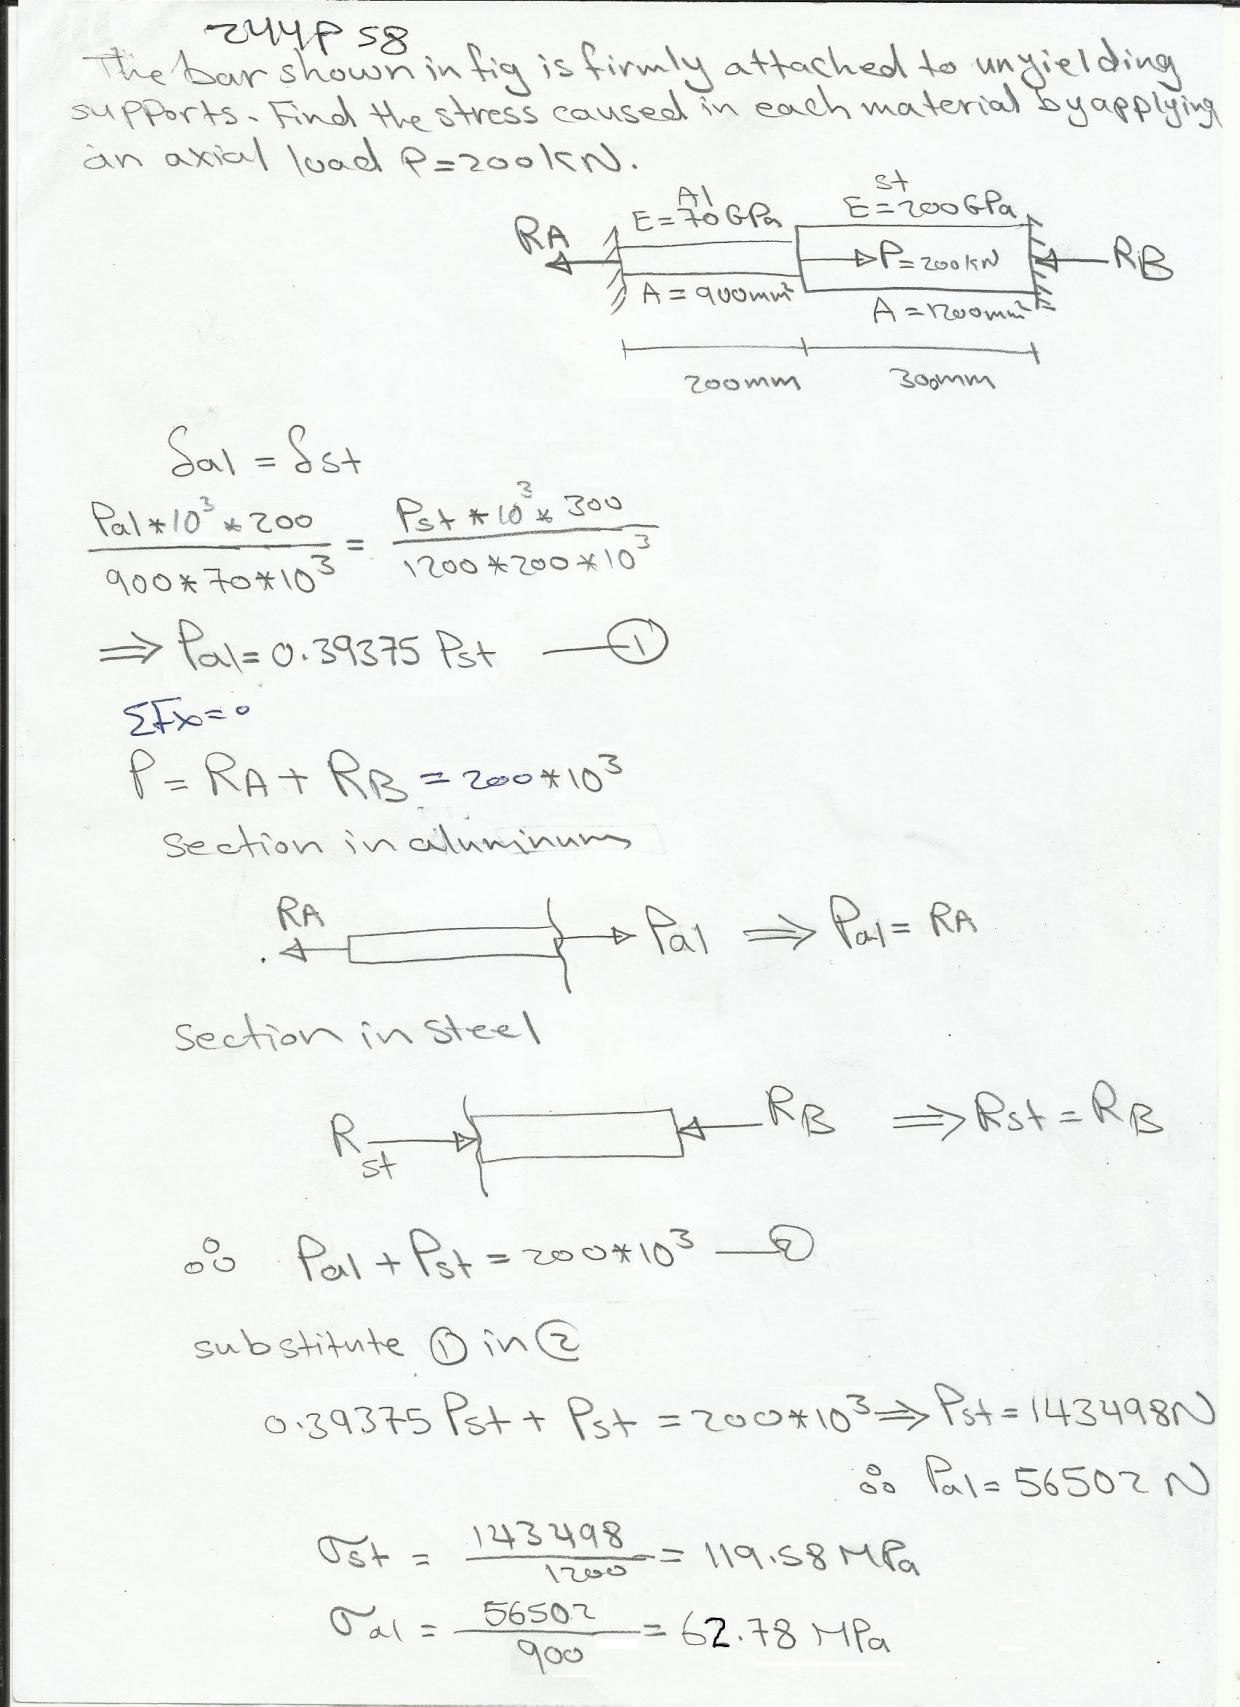 244P 58
The bar shown in fig is firmly attached to unyielding
supports. Find the stress caused in each material by applying
an axial load P=200kN.
Al
St
E=70GPa
E=200GPa
RA
P=200kN
RB
A=900mm²
A=1200mm²
200mm
300mm
δal = δst
Pal*10³*200 / 900*70*10³ = Pst*10³*300 / 1200*200*10³
⇒ Pal=0.39375 Pst — ①
ΣFx=0
P = RA + RB = 200*10³
section in aluminum
RA
Pal ⇒ Pal = RA
section in steel
Rst
RB ⇒ Rst = RB
∴ Pal + Pst = 200*10³ — ②
substitute ① in ②
0.39375 Pst + Pst = 200*10³ ⇒ Pst = 143498N
∴ Pal = 56502 N
σst = 143498 / 1200 = 119.58 MPa
σal = 56502 / 900 = 62.78 MPa